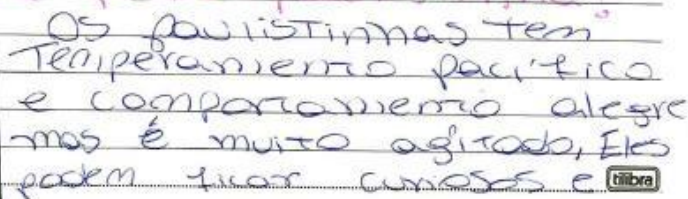 Os paulistinhas tem
Temperamento pacífico
e comportamento alegre
mas é muito agitado, Eles
podem ficar curiosos e
tilibra